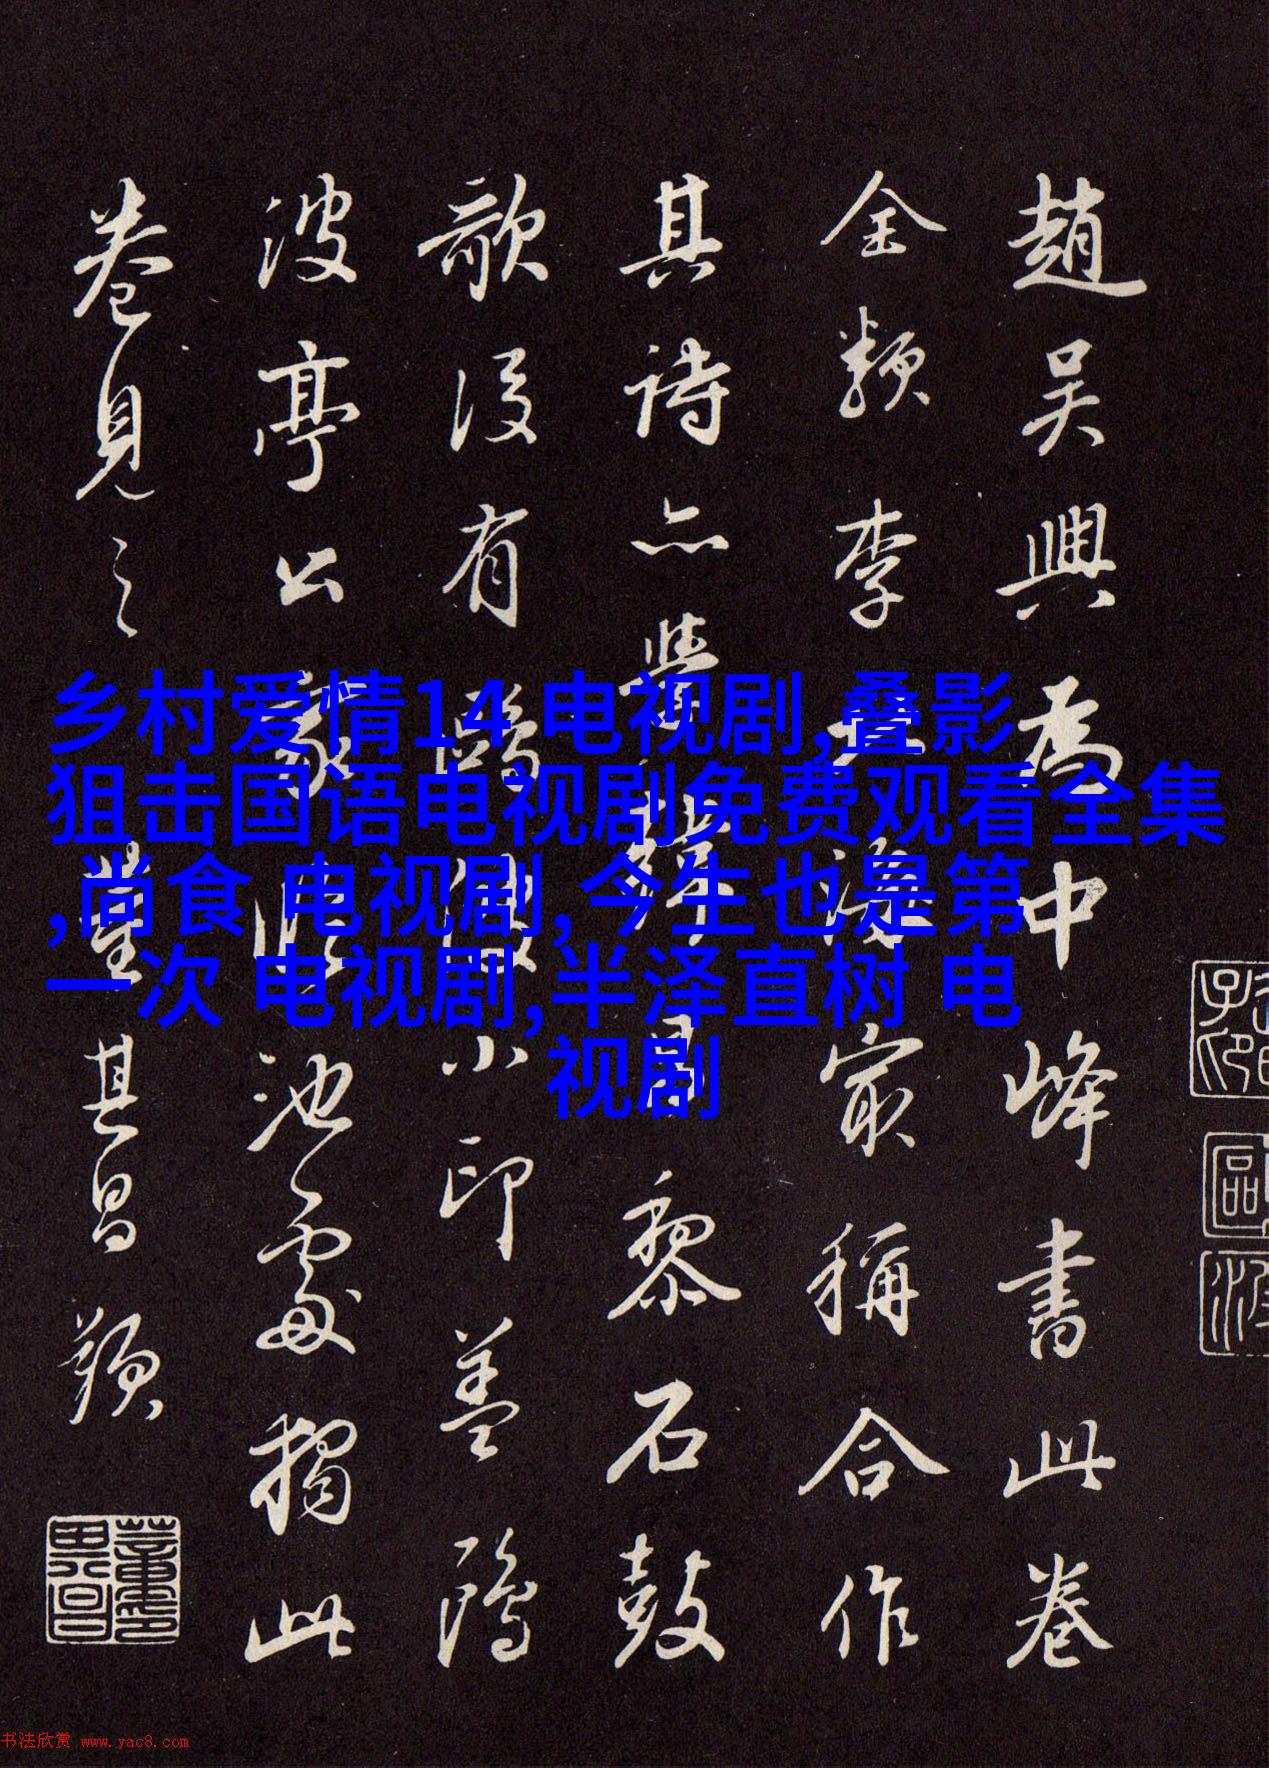 趙吳興為中峰書此卷
全類李北海最稱合作
其詩亦韓昌黎石鼓
歌後有鷗波小印蓋鷗
波亭公家臨池處獨此
卷見之 董其昌題
乡村爱情14 电视剧,叠影
狙击国语电视剧免费观看全集
,尚食 电视剧,今生也是第
一次 电视剧,半泽直树 电
视剧
书法欣赏 www.yac8.com